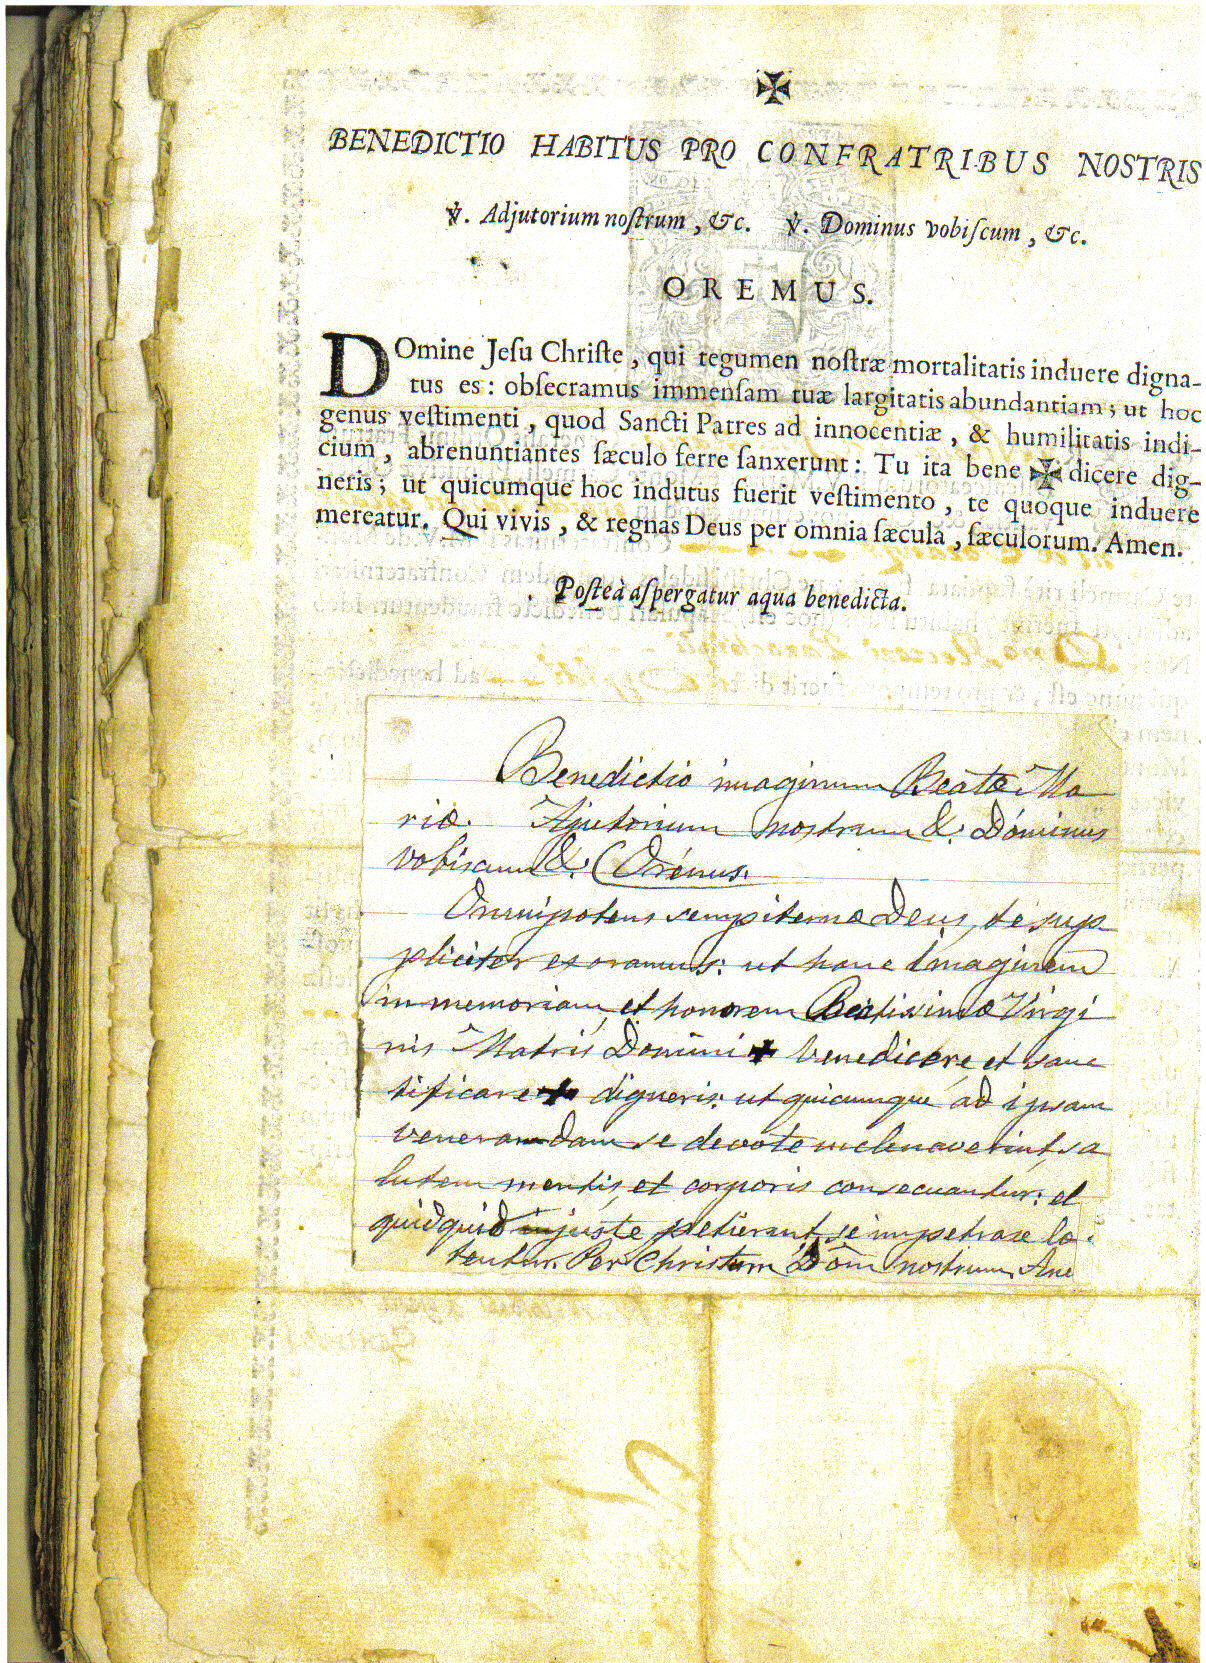 ✠
BENEDICTIO HABITUS PRO CONFRATRIBUS NOSTRIS
℣. Adjutorium noſtrum, &c. ℣. Dominus vobiſcum, &c.
OREMUS.
DOmine Jeſu Chriſte, qui tegumen noſtræ mortalitatis induere digna-
tus es: obſecramus immenſam tuæ largitatis abundantiam; ut hoc
genus veſtimenti, quod Sancti Patres ad innocentiæ, & humilitatis indi-
cium, abrenuntiantes ſæculo ferre ſanxerunt: Tu ita bene ✠ dicere dig-
neris; ut quicumque hoc indutus fuerit veſtimento, te quoque induere
mereatur. Qui vivis, & regnas Deus per omnia ſæcula, ſæculorum. Amen.
Poſteà aſpergatur aqua benedicta.
Benedictio imaginum Beatæ Ma
riæ. Ajutorium nostrum &. Dóminus
vobiscum &. Orémus.
Omnipotens sempiternæ Deus, te sup
pliciter exoramus: ut hanc Imaginem
in memoriam, et honorem Beatissimæ Virgi
nis Matris Domini + benedicere et sanc
tificare + digneris: ut quicumque ad ipsam
venerandam se devote inclinaverint, sa
lutem mentis, et corporis consecuantur: et
quidquid juste petierint, se impetrase læ.
tentur. Per Christum Dôm nostrum, Ame